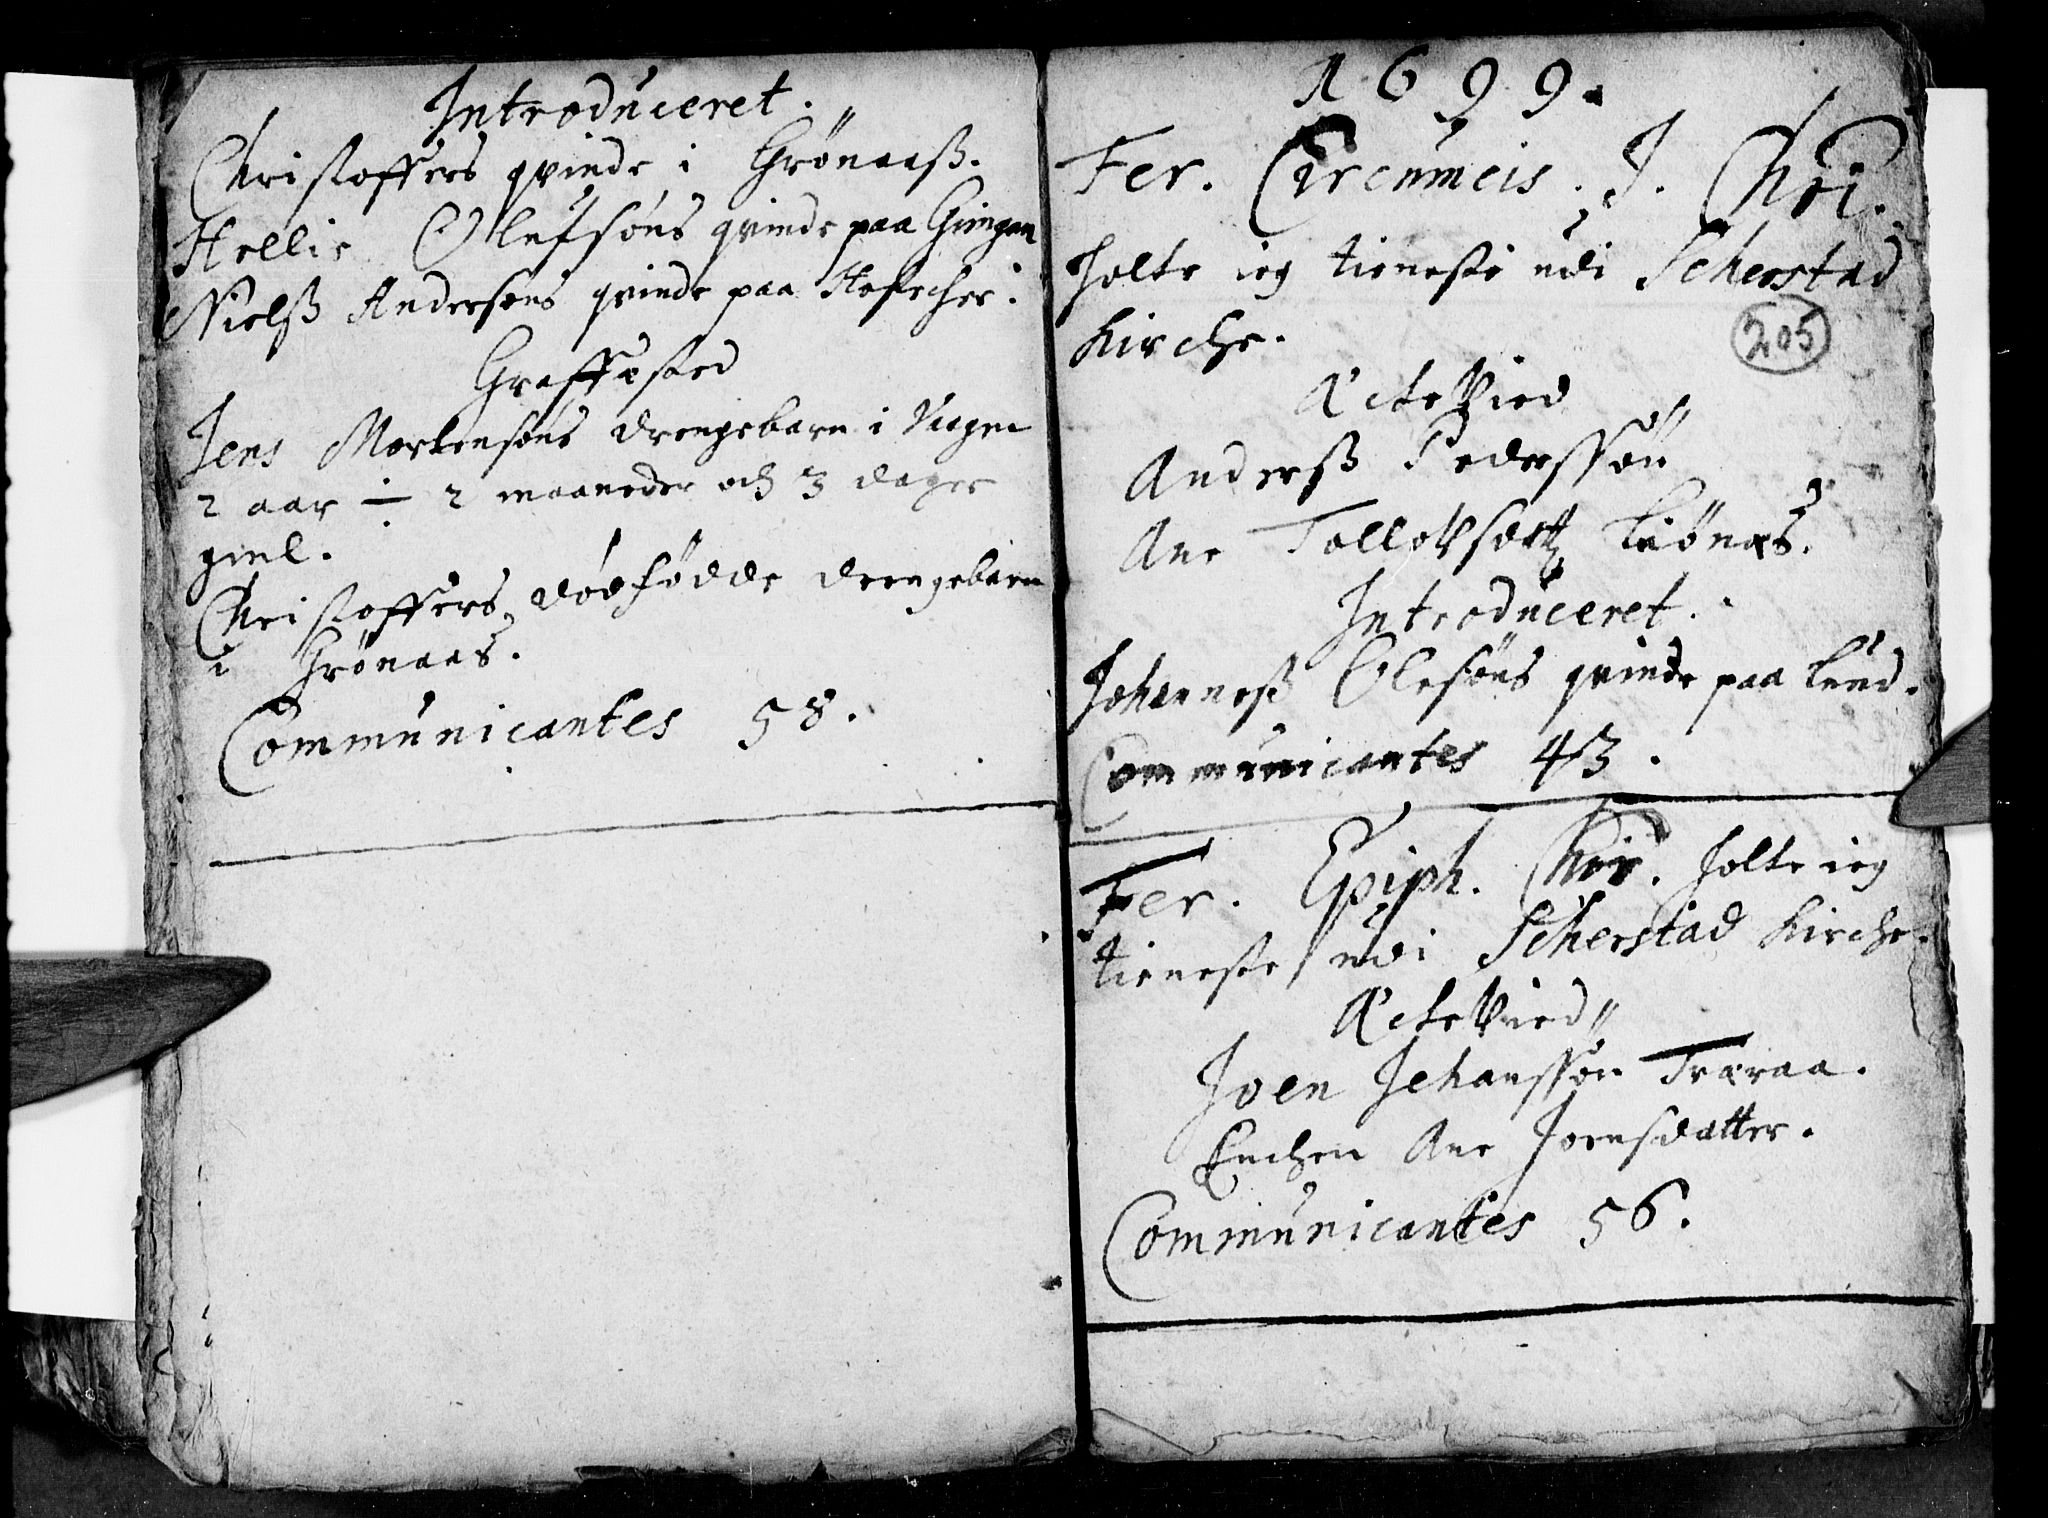 Introduceret.
Christoffers qvinde i Grönaaß.
Hellie Olufsöns qvinde paa Gimgen
Nielß Andersöns qvinde paa
Graffæsted
Jens Mortensöns drengebarn i
2 aar ÷ 2 maaneder och 3 dager
giel.
Christoffers dödfödde drengebarn
i Grönaas.
Communicantes 58.
1699.
Fer. Circumcis. J. Chri.
holte ieg tieneste udi Scherstad
Kirche.
205
Æcte Vied
Anderß Pederssön
Ane Tollovsdatt Liönæs.
Introduceret.
Johanneß Olesöns qvinde paa Lund.
Communicantes 43.
Fer. Epiph. Chr. holte ieg
tieneste udi Scherstad Kirche.
Æcte Vied
Joen Johanssön Træraa.
Enchen Ane Joensdatter.
Communicantes 56.